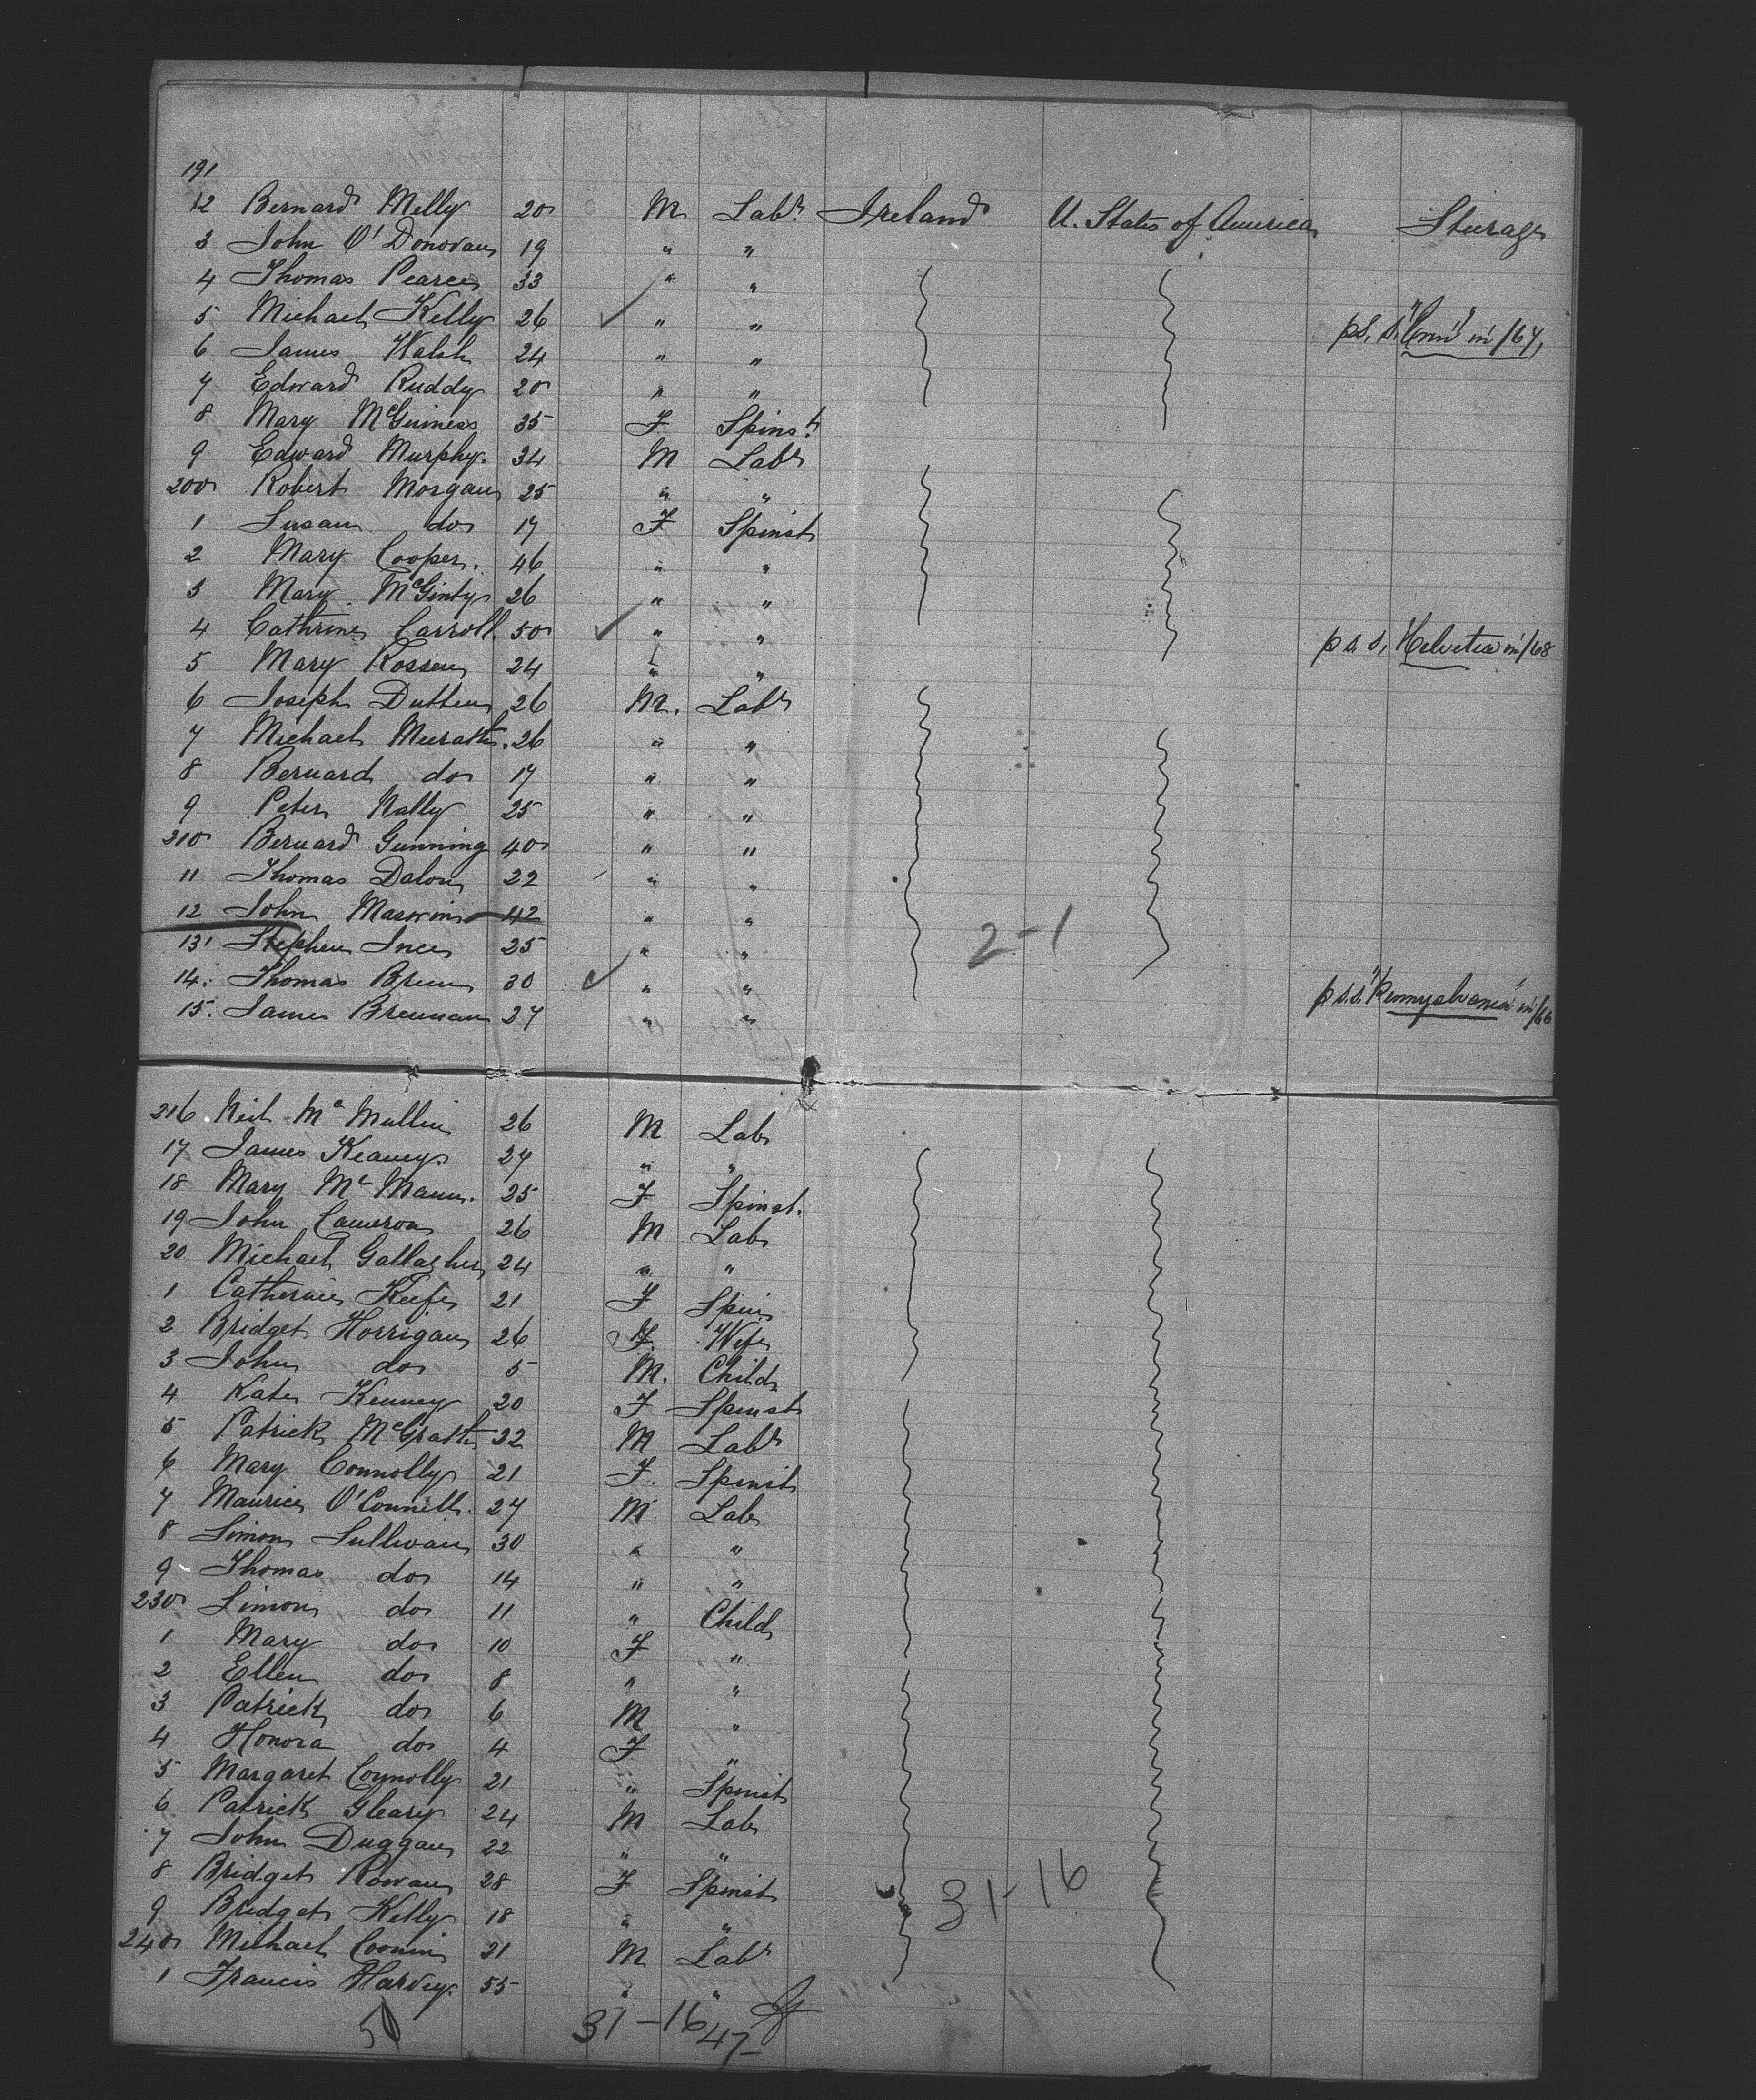 191
12 Bernard Melly 20 M Labr. Ireland U. States of America Steerage
3 John O'Donovan 19 " "
4 Thomas Pearce 33 " "
5 Michael Kelly 26 ✓ " " p S. S. in /67,
6 James Walsh 24 " "
7 Edward Ruddy 20 " "
8 Mary McGuiness 35 F Spinst.
9 Edward Murphy. 34 M Labr
200 Robert Morgan 25 " "
1 Susan do 17 F Spinst
2 Mary Cooper. 46 " "
3 Mary McGinty 26 " "
4 Cathrine Carroll. 50 ✓ " " p s. s, Helvetia in /68
5 Mary Rossen 24 " "
6 Joseph Dutten 26 M. Labr
7 Michael 26 " "
8 Bernard do 17 " "
9 Peter Nally 25 " "
210 Bernard Gunning 40 " "
11 Thomas Dalon 22 " "
12 John 42 " "
13 Stephen Ince 25 " " 2-1
14. Thomas Breen 30 ✓ " " p s.s. "Pennsylvania" in /66
15. James Brennan 27 " "
216 Neil Mc Mullin 26 M Lab
17 James Keaney. 27 " "
18 Mary Mc Mann. 25 F Spinst.
19 John Cameron 26 M Lab
20 Michael Gallagher 24 " "
1 Catherine Keefe 21 F Spin
2 Bridget Horrigan 26 F. Wife
3 John do 5 M. Child
4 Kate Kenney 20 F Spinst
5 Patrick McGrath 32 M Labr
6 Mary Connolly 21 F. Spinst
7 Maurice O'Connell. 27 M Lab
8 Simon Sullivan 30 " "
9 Thomas do 14 " "
230 Simon do 11 " Child
1 Mary do 10 F "
2 Ellen do 8 " "
3 Patrick do 6 M "
4 Honora do 4 F "
5 Margaret Connolly 21 " Spinst
6 Patrick Gleary 24 M Lab
7 John Duggan 22 " "
8 Bridget Rowan 28 F Spinst
9 Bridget Kelly 18 " " 31-16
240 Michael 21 M Labr
1 Francis Harvey. 55 " "
50 31-16 47